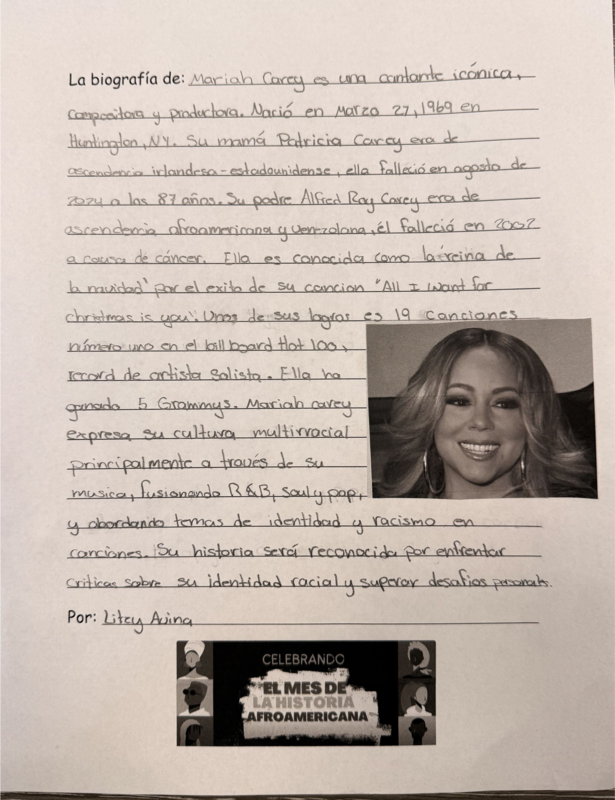 La biografía de: Mariah Carey es una cantante icónica,
compositora y productora. Nació en Marzo 27, 1969 en
Huntington, NY. Su mamá Patricia Carey era de
ascendencia irlandesa-estadounidense, ella falleció en agosto de
2024 a los 87 años. Su padre Alfred Roy Carey era de
ascendemia afroamericana y venezolana, él falleció en 2002
a causa de cáncer. Ella es conocida como la "reina de
la navidad" por el exito de su cancion "All I want for
christmas is you". Unos de sus logros es 19 canciones
número uno en el billboard Hot 100,
record de artista solista. Ella ha
ganado 5 Grammys. Mariah carey
expresa su cultura multirracial
principalmente a través de su
musica, fusionando R&B, Soul y pop,
y abordando temas de identidad y racismo en
canciones. Su historia será reconocida por enfrentar
criticas sobre su identidad racial y superar desafios personales.
Por: Litzy
CELEBRANDO
EL MES DE
LA HISTORIA
AFROAMERICANA